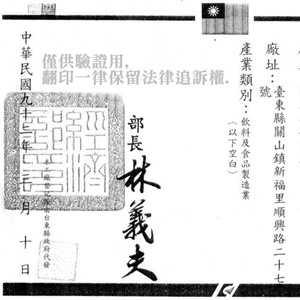 廠址：臺東縣關山鎮新福里順興路二十七
號
產業類別：飲料及食品製造業
（以下空白）
僅供驗證用，
翻印一律保留法律追訴權．
部長 林義夫
經濟部印
本工廠登記證由台東縣政府代發
中華民國九十三年 月 十 日